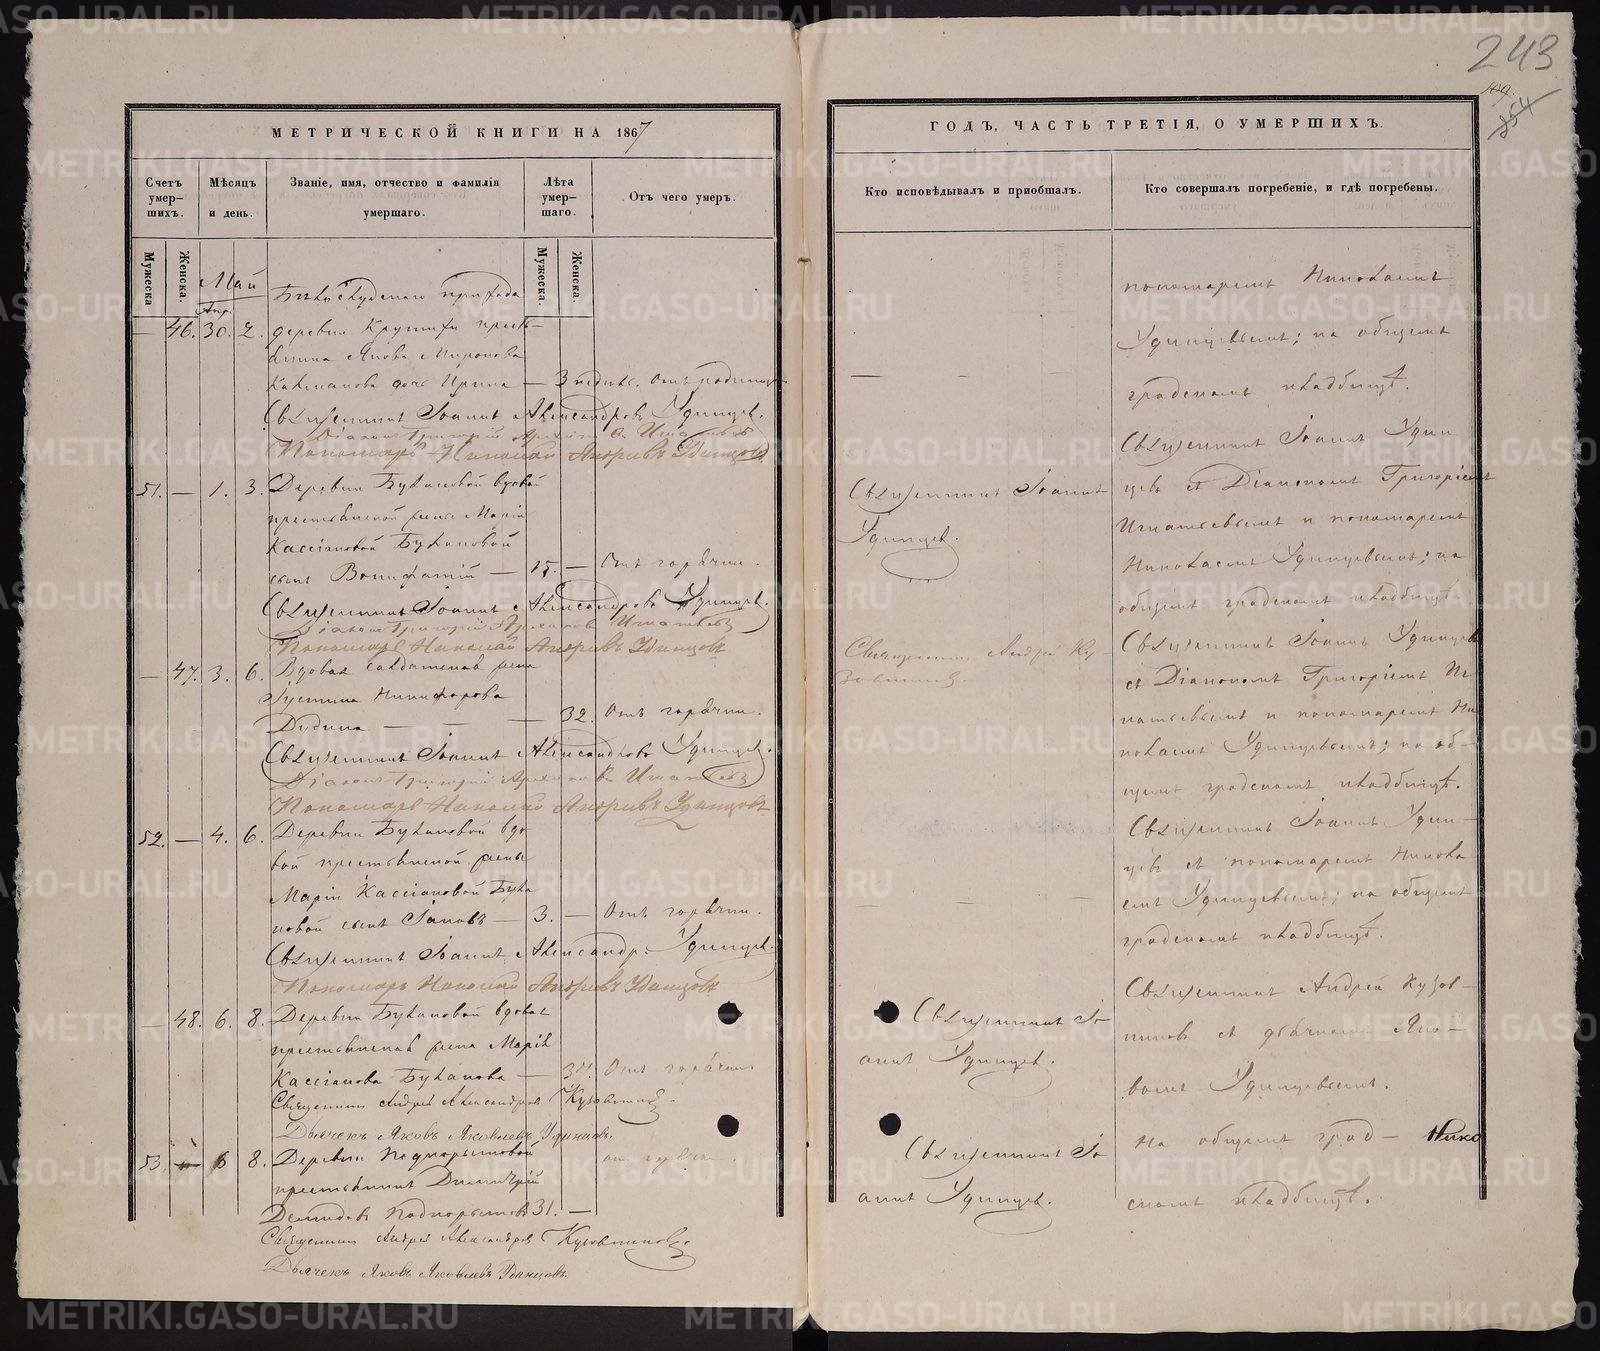 243
МЕТРИЧЕСКОЙ КНИГИ НА 1867
Счетъ умер-шихъ.
Мѣсяцъ и день.
Званіе, имя, отчество и фамилія умершаго.
Лѣта умер-шаго.
Отъ чего умеръ.
Мужеска
Женска.
Мужеска.
Женска.
Май
прихода
Апр.
— 46. 30. 2. деревни
Якова Миронова
дочь Ирина — 3 недѣл. Отъ родимца
Священникъ Іоаннъ Александровъ Удинцев.
Діаконъ Григорій Игнатьевъ
Пономарь Николай Андреевъ Удинцовъ
51. — 1. 3. Деревни Букановой вдовой
крестьянской жены Маріи
Кассіановой Букановой
сынъ Вонифатій — 15. — Отъ горячки.
Священникъ Іоаннъ Александровъ Удинцев.
Діаконъ Григорій Игнатьевъ
Пономарь Николай Андреевъ Удинцовъ
— 47. 3. 6. Вдовая солдатская жена
Іустина Никифорова
Дудина — — — 32. Отъ горячки.
Священникъ Іоаннъ Александровъ Удинцев.
Діаконъ Григорій Игнатьевъ
Пономарь Николай Андреевъ Удинцовъ
52. — 4. 6. Деревни Букановой вдо-
вой крестьянской жены
Маріи Кассіановой Бука
новой сынъ Іаковъ — 3. — Отъ горячки.
Священникъ Іоаннъ Александр. Удинцев.
Пономарь Николай Андреевъ Удинцовъ
— 48. 6. 8. Деревни Букановой вдовая
крестьянская жена Марія
Кассіанова Буканова — Отъ горячки.
Священникъ Андрей Александровъ Кузовниковъ
Дьячекъ Яковъ Яковлевъ Удинцовъ.
53. — 6 8. Деревни
крестьянинъ Димитрій
Демидовъ 31. —
Священникъ Андрей Александровъ Кузовниковъ
Дьячекъ Яковъ Яковлевъ Удинцовъ.
ГОДЪ, ЧАСТЬ ТРЕТІЯ, О УМЕРШИХЪ.
Кто исповѣдывалъ и пріобщалъ.
Кто совершалъ погребеніе, и гдѣ погребены.
Священникъ Іоаннъ
Удинцев.
Священникъ Андрей Ку-
зовников.
Священникъ Іо-
аннъ Удинцев.
Священникъ Іо-
аннъ Удинцев.
пономаремъ Николаемъ
Удинцевымъ; на общемъ
градскомъ кладбищѣ.
Священникъ Іоаннъ Удин-
цевъ съ Діакономъ Григоріемъ
Игнатьевымъ и пономаремъ
Николаемъ Удинцевымъ; на
общемъ градскомъ кладбищѣ.
Священникъ Іоаннъ Удинцевъ
съ Діакономъ Григоріемъ Иг
натьевымъ и пономаремъ Ни
колаемъ Удинцевымъ; на об-
щемъ градскомъ кладбищѣ.
Священникъ Іоаннъ Удин-
цевъ съ пономаремъ Никола
емъ Удинцевымъ; на общемъ
градскомъ кладбищѣ.
Священникъ Андрей Кузов-
никовъ съ дьячкомъ Яко-
вомъ Удинцевымъ.
На общемъ град-
скомъ кладбищѣ.
METRIKI.GASO-URAL.RU